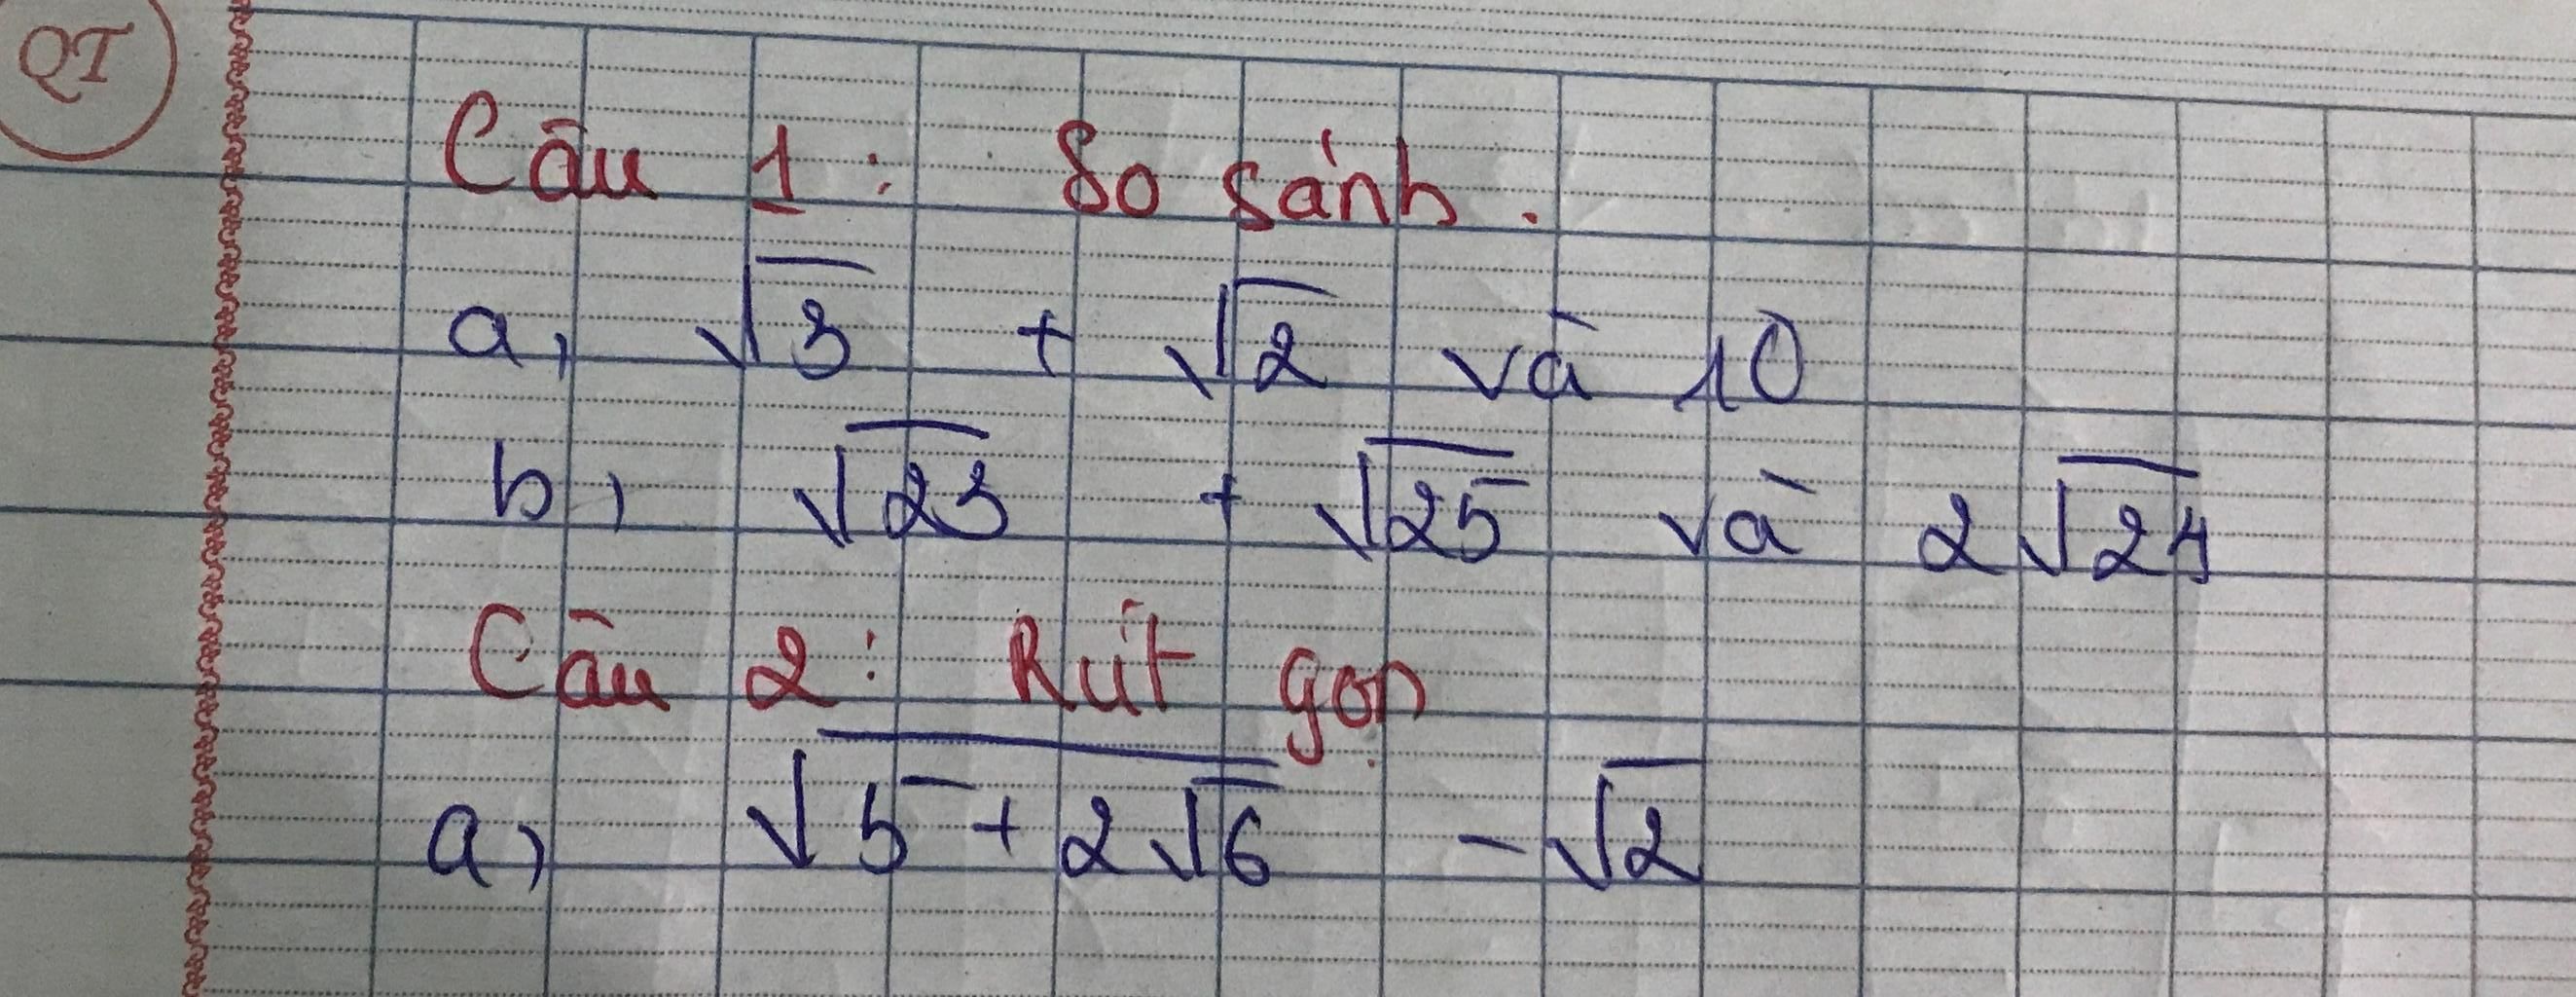 QT
Câu 1: So sánh.
a, √3 + √2 và 10
b, √23 + √25 và 2√24
Câu 2: Rút gọn
a, √(5 + 2√6) - √2